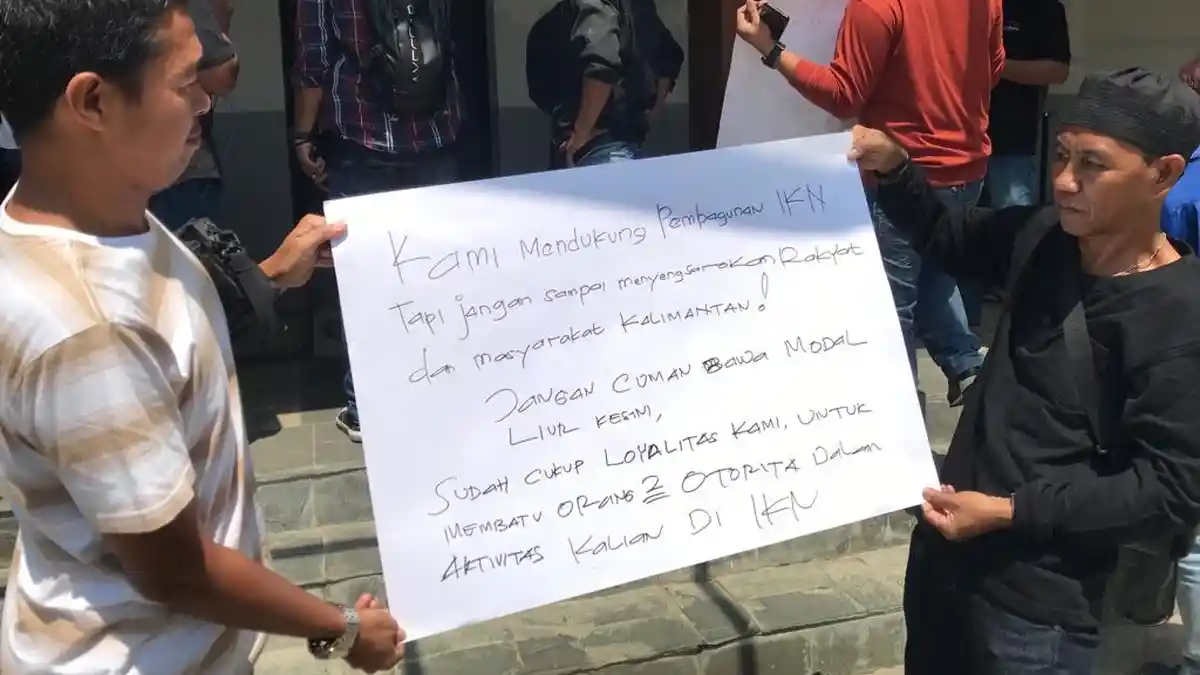 Kami Mendukung Pembagunan IKN
Tapi jangan sampai menyengsarakan Rakyat
dan masyarakat KALIMANTAN!
JANGAN CUMAN BAWA MODAL
LIUR KESINI,
SUDAH CUKUP LOYALITAS KAMI, UNTUK
MEMBATU ORANG2 OTORITA Dalam
AKTIVITAS KALIAN DI IKN